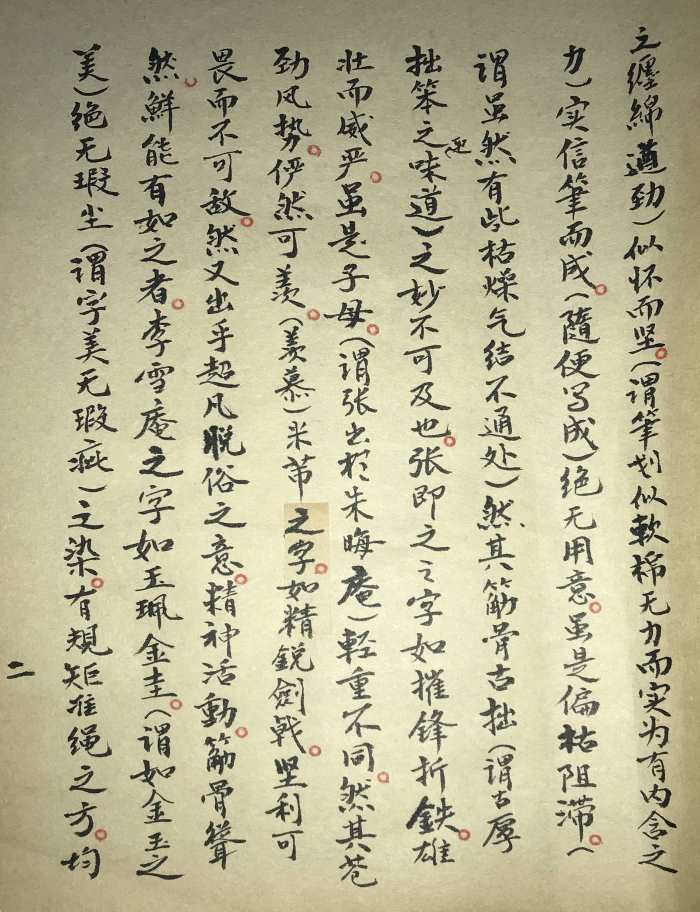 之缠綿遒劲）似怀而坚。（谓筆划似軟棉无力而实为有内含之
力）实信筆而成。（隨便写成）绝无用意。虽是偏枯阻滞。（
谓虽然有些枯燥气结不通处）然其筋骨古拙（谓古厚
拙笨之味道）之妙不可及也。张即之之字如摧锋折鉄。雄
壮而威严。虽是子母。（谓张出於朱晦庵）輕重不同。然其苍
劲风势。俨然可羡。（羡慕）米芾之字。如精鋭劍戟。坚利可
畏而不可敌。然又出乎超凡脱俗之意。精神活動。筋骨聳
然。鮮能有如之者。李雪庵之字如玉珮金圭。（谓如金玉之
美）绝无瑕尘（谓字美无瑕疵）之染。有規矩准绳之方。均
二